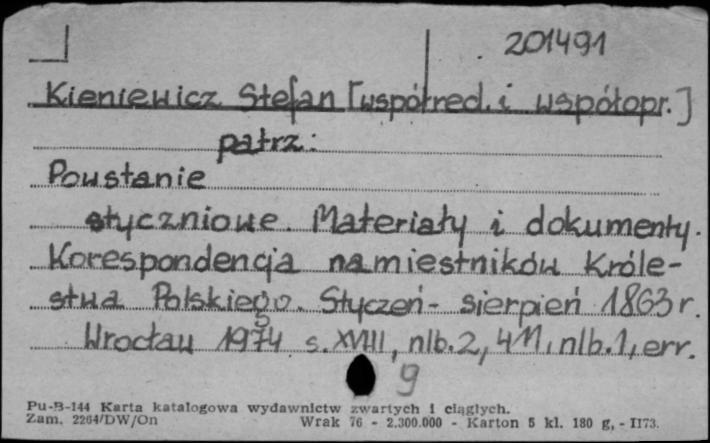 201491
Kieniewicz Stefan [współred. i współopr.]
patrz:
Powstanie
styczniowe. Materiały i dokumenty.
Korespondencja namiestników Króle-
stwa Polskiego. Styczeń - sierpień 1863 r.
Wrocław 1974 s. XVIII, nlb. 2, 411, nlb. 1, err.
9
Pu-B-144 Karta katalogowa wydawnictw zwartych i ciągłych.
Zam. 2264/DW/On Wrak 76 - 2.300.000 - Karton 5 kl. 180 g, - II73.